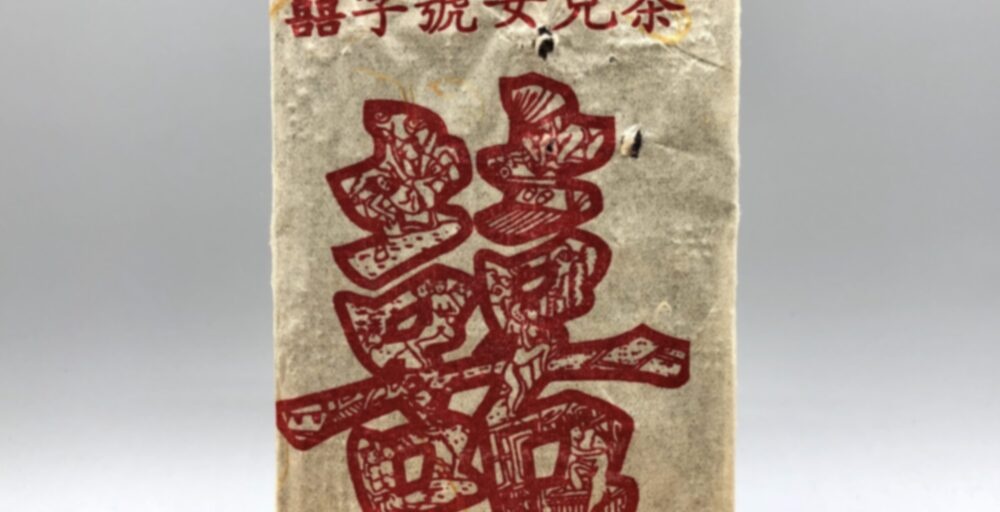 囍字號女兒茶
囍